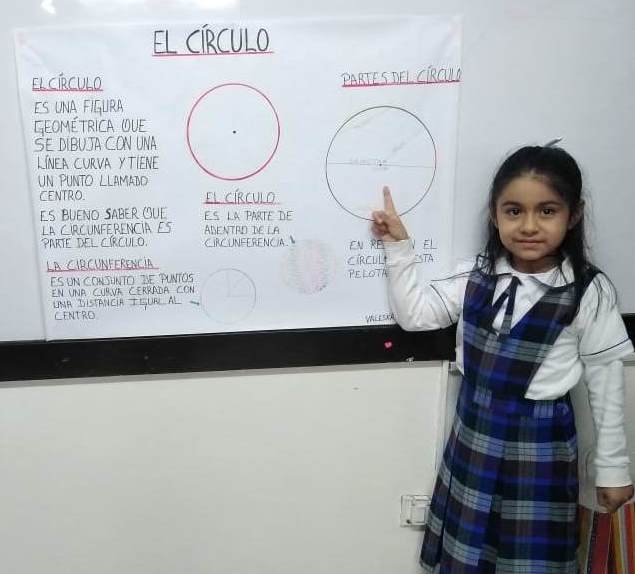 EL CÍRCULO
EL CÍRCULO
ES UNA FIGURA
GEOMÉTRICA QUE
SE DIBUJA CON UNA
LÍNEA CURVA Y TIENE
UN PUNTO LLAMADO
CENTRO.
ES BUENO SABER QUE
LA CIRCUNFERENCIA ES
PARTE DEL CÍRCULO.
LA CIRCUNFERENCIA
ES UN CONJUNTO DE PUNTOS
EN UNA CURVA CERRADA CON
UNA DISTANCIA IGUAL AL
CENTRO.
EL CÍRCULO
ES LA PARTE DE
ADENTRO DE LA
CIRCUNFERENCIA.
PARTES DEL CÍRCULO
EN RE N EL
CÍRCUL STA
PELOTA
VALESKA